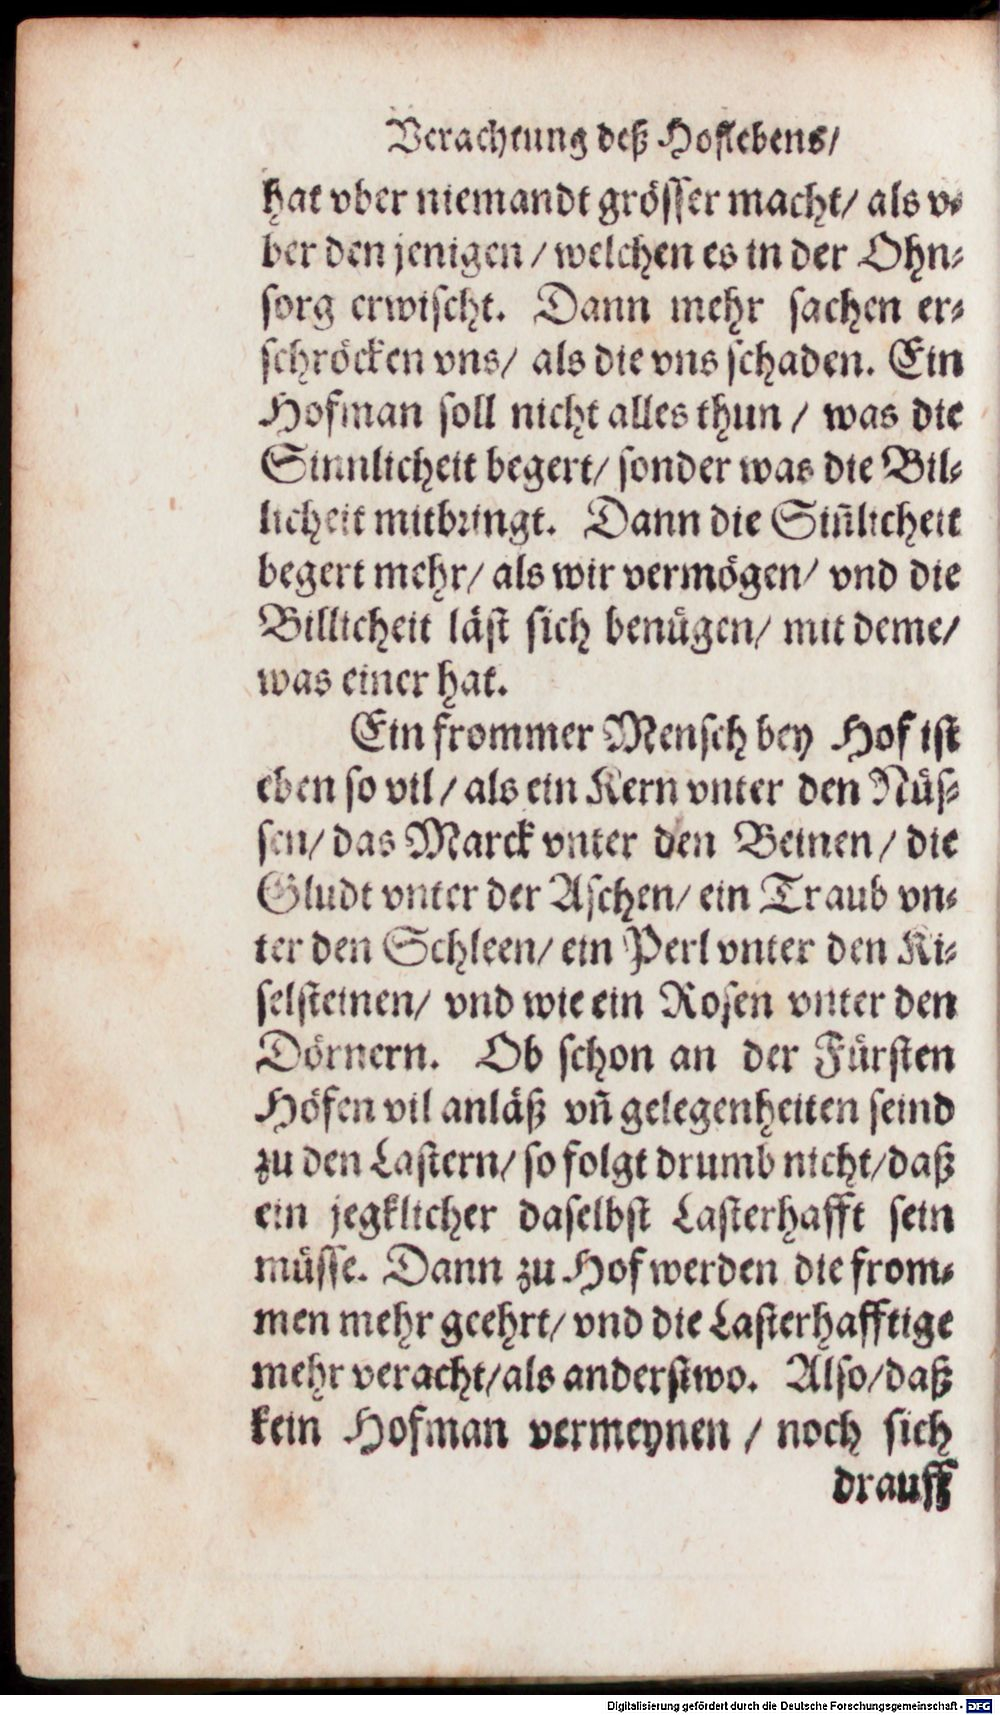 Verachtung deß Hoflebens/
hat vber niemandt grösser macht/ als v⸗
ber den jenigen / welchen es in der Ohn⸗
sorg erwischt. Dann mehr sachen er⸗
schröcken vns/ als die vns schaden. Ein
Hofman soll nicht alles thun / was die
Sinnlicheit begert/ sonder was die Bil⸗
licheit mitbringt. Dann die Siñlicheit
begert mehr/ als wir vermögen/ vnd die
Billicheit läst sich benügen/ mit deme/
was einer hat.
Ein frommer Mensch bey Hof ist
eben so vil / als ein Kern vnter den Nüs⸗
sen/ das Marck vnter den Beinen / die
Gludt vnter der Aschen/ ein Traub vn⸗
ter den Schleen/ ein Perl vnter den Ki⸗
selsteinen/ vnd wie ein Rosen vnter den
Dörnern. Ob schon an der Fürsten
Höfen vil anläß vñ gelegenheiten seind
zu den Lastern/ so folgt drumb nicht/ daß
ein jegklicher daselbst Lasterhafft sein
müsse. Dann zu Hof werden die from⸗
men mehr geehrt/ vnd die Lasterhafftige
mehr veracht/ als anderstwo. Also/ daß
kein Hofman vermeynen / noch sich
drauff
Digitalisierung gefördert durch die Deutsche Forschungsgemeinschaft - DFG